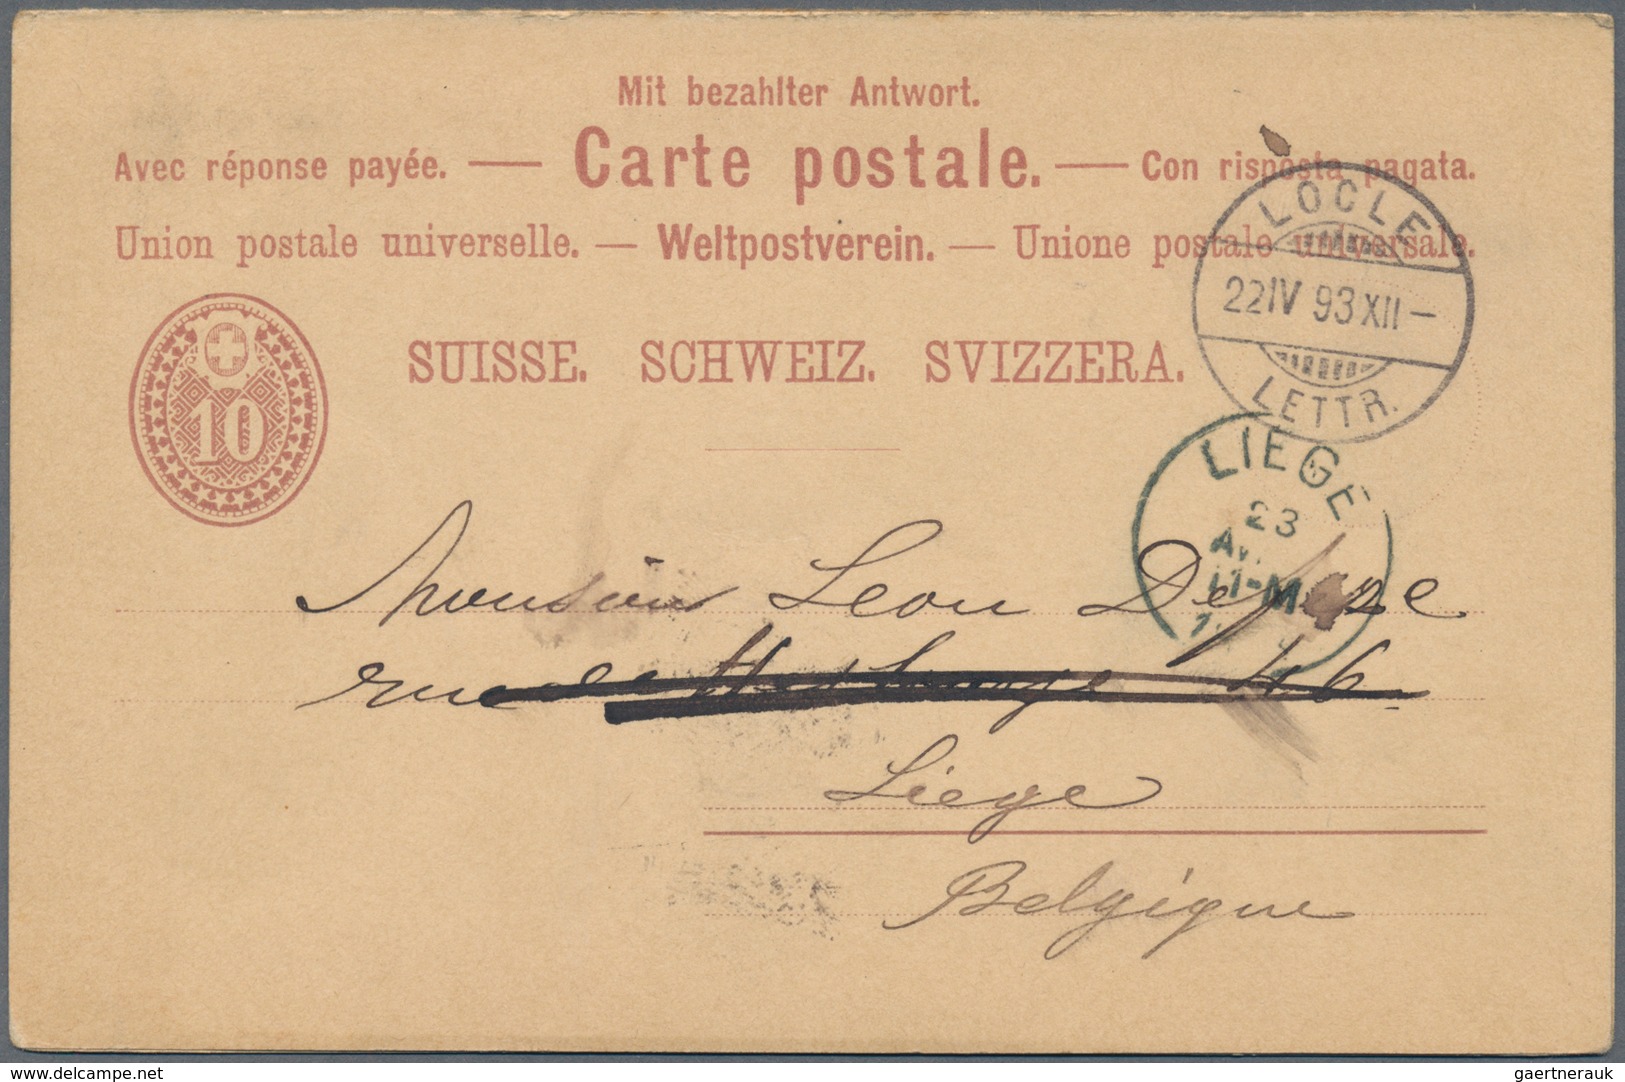 Mit bezahlter Antwort.
Avec réponse payée. — Carte postale. — Con risposta pagata.
Union postale universelle. — Weltpostverein. — Unione postale universale.
LOCLE
22 IV 93 XII –
LETTR.
10
SUISSE. SCHWEIZ. SVIZZERA.
LIEGE
23
11-M
Monsieur Leon
rue de 46
Liège
Belgique
www.delcampe.net
gaertnerauk